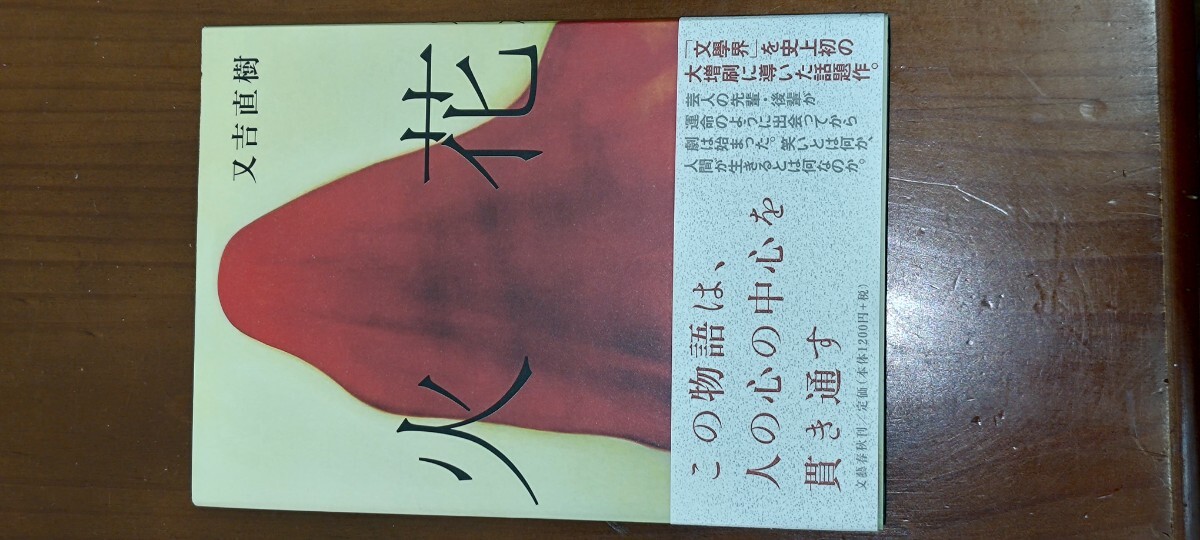 又吉直樹
火花
「文學界」を史上初の
大増刷に導いた話題作。
芸人の先輩・後輩が
運命のように出会ってから
劇は始まった。笑いとは何か、
人間が生きるとは何なのか。
この物語は、
人の心の中心を
貫き通す
文藝春秋刊 定価(本体1200円+税)